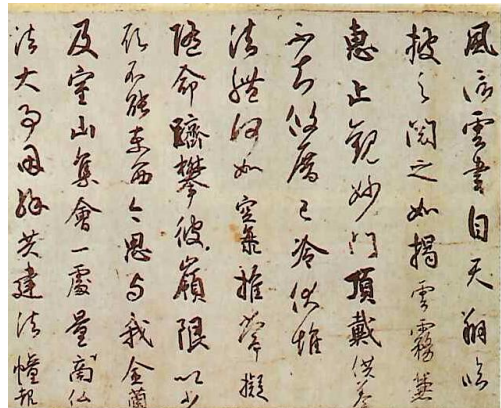 風信雲書自天翔臨
披之閲之如掲雲霧兼
恵止観妙門頂戴供養
不知攸厝已冷伏惟
法體何如空海推常擬
隨命躋攀彼嶺限以少
願不能東西今思与我金蘭
及室山集會一處量商仏
法大事因縁共建法幢報